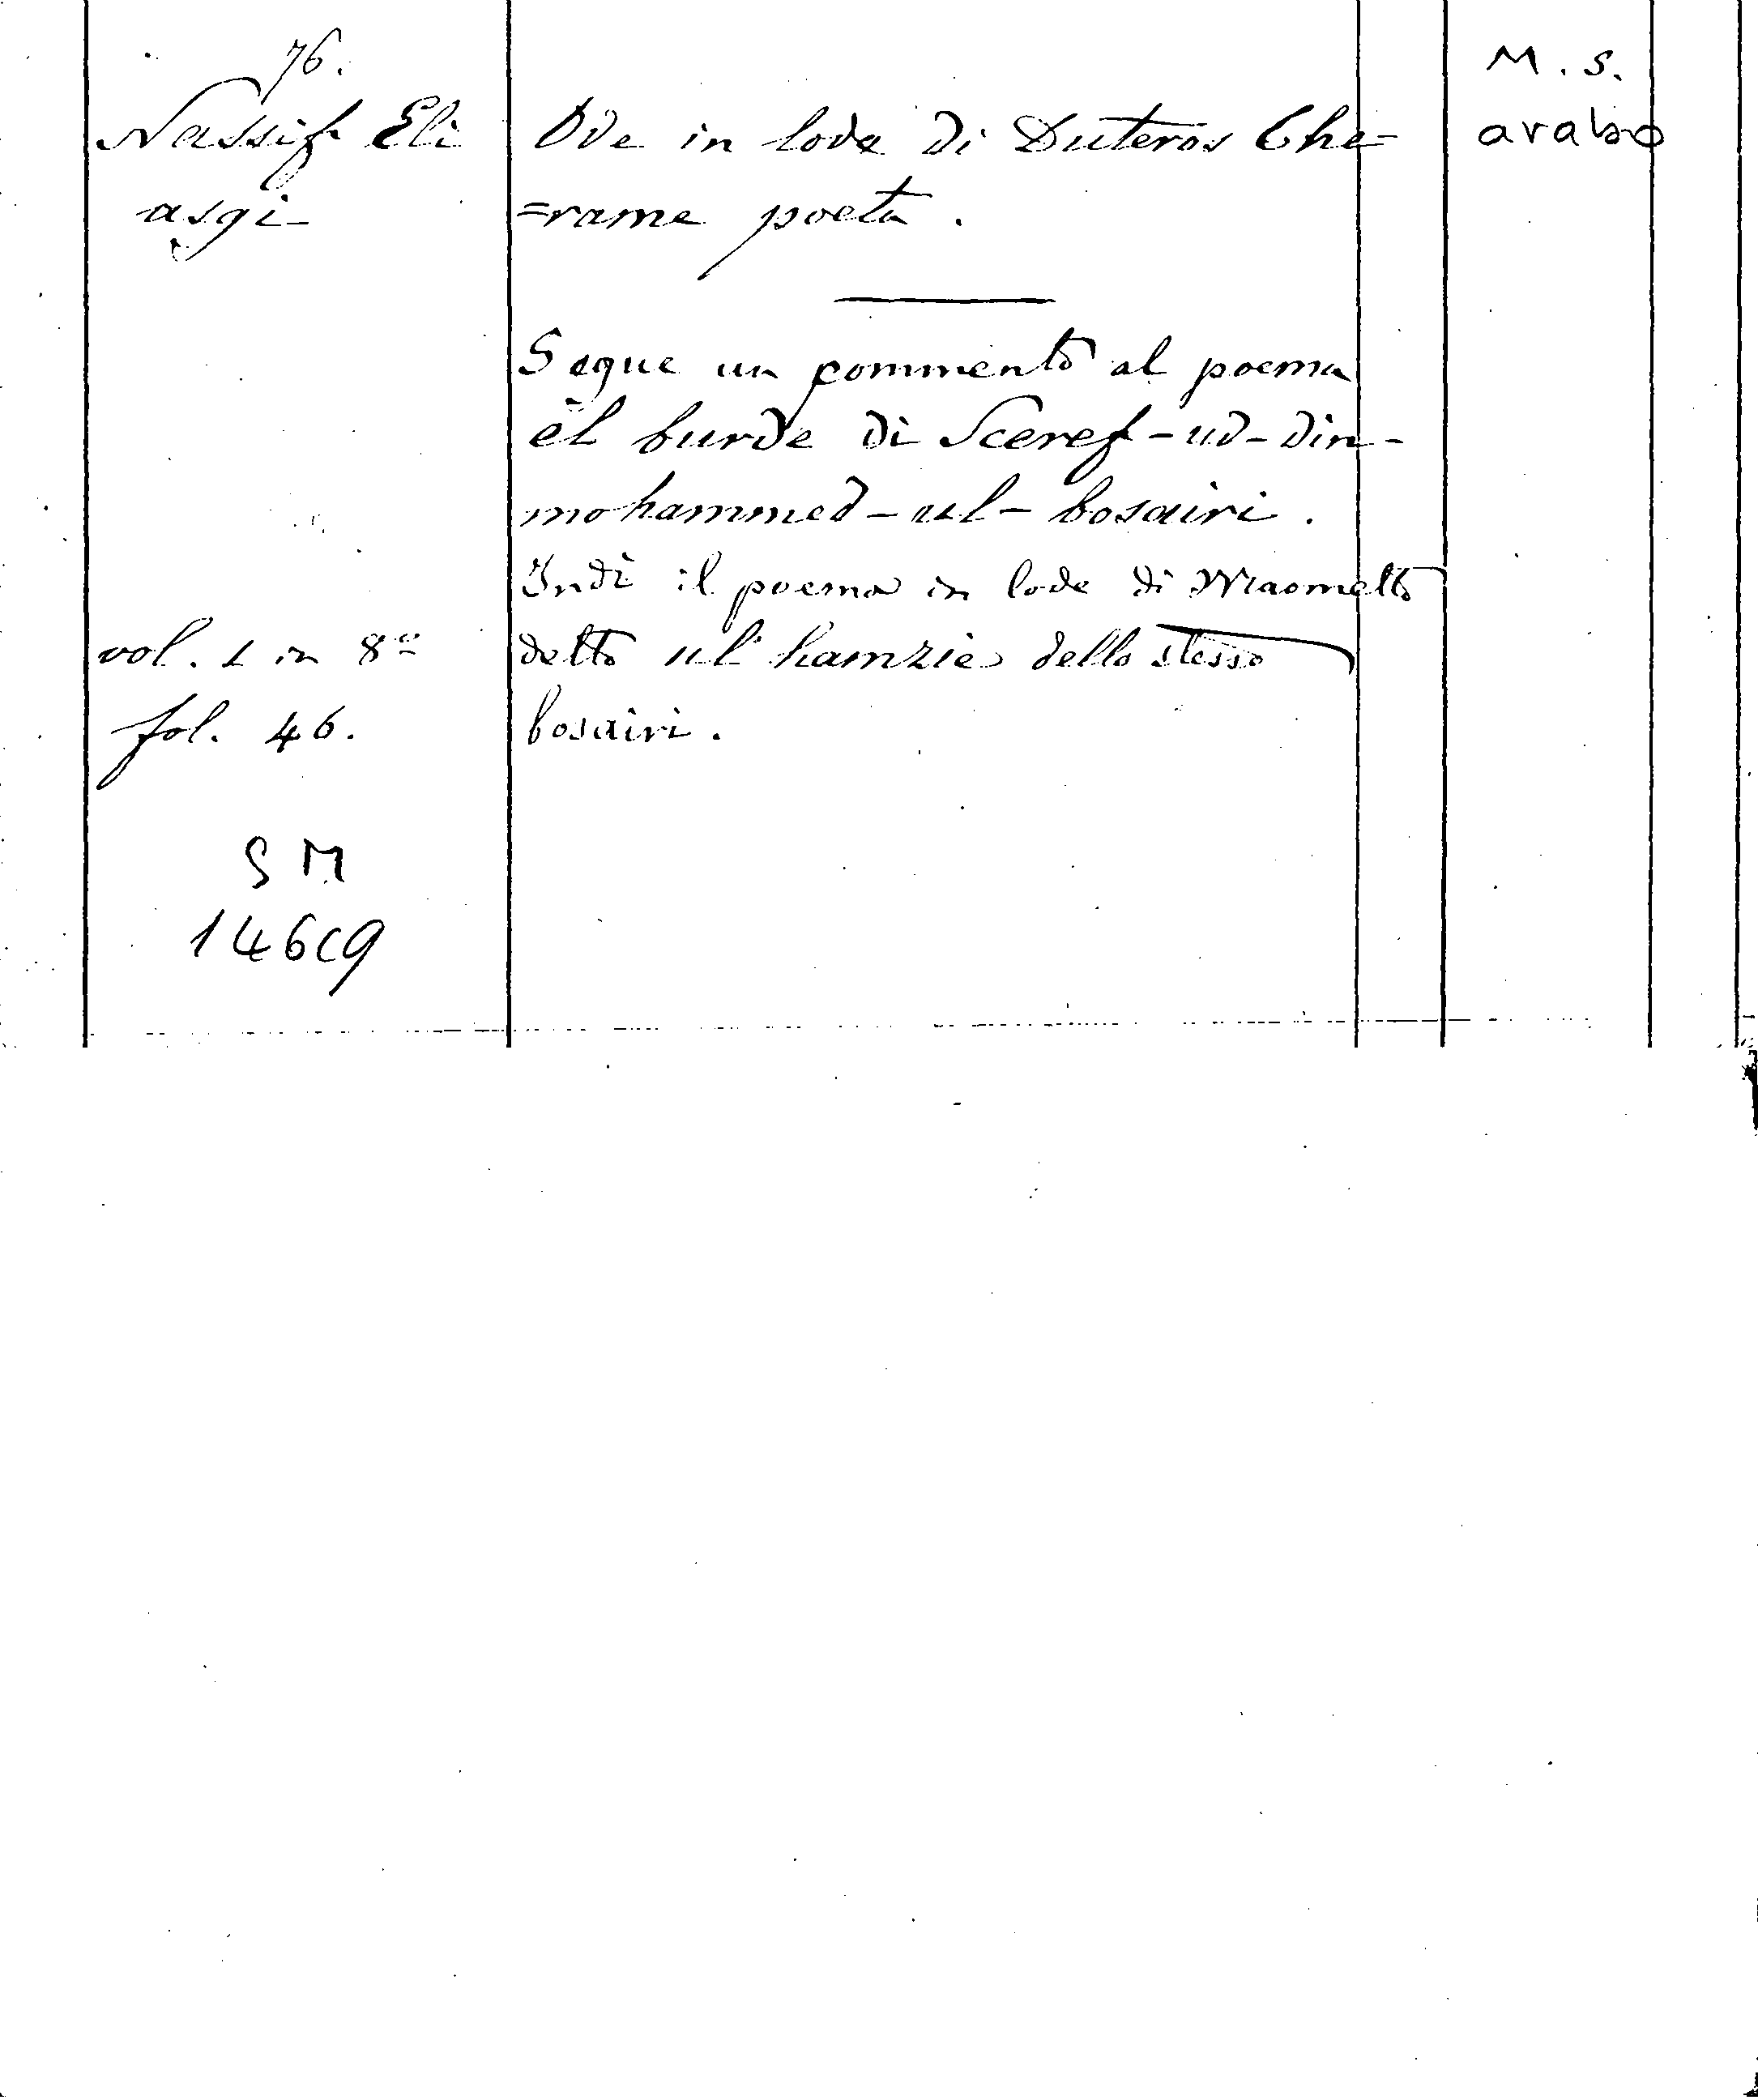 76.
Nassif Eli
asgi-
Ode in lode di Duteros Che=
=rame poeta.
M. S.
arabo
Segue un commento al poema
el burde di Sceref-ud-din-
mohammed-ul-bosairi.
Indi il poema in lode di Maometto
detto ul hamzie dello stesso
bosairi.
vol. 1 in 8º
fol. 46.
SM